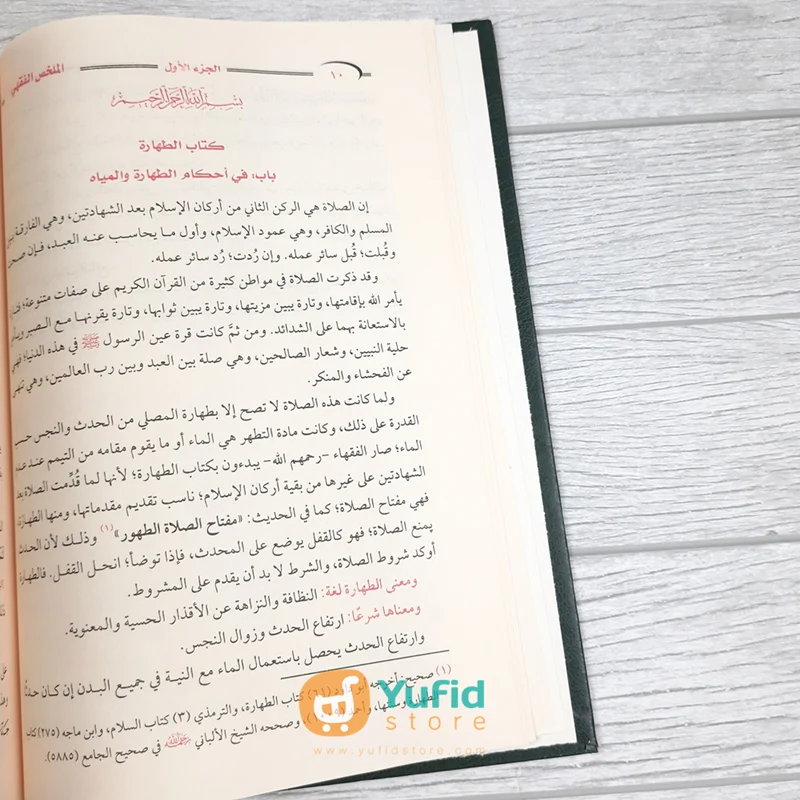 ١٠ الجزء الأول الملخص الفقهي
بسم الله الرحمن الرحيم
كتاب الطهارة
باب: في أحكام الطهارة والمياه
إن الصلاة هي الركن الثاني من أركان الإسلام بعد الشهادتين، وهي الفارقة بين
المسلم والكافر، وهي عمود الإسلام، وأول ما يحاسب عنه العبد، فإن صحت
وقُبلت؛ قُبل سائر عمله. وإن رُدت؛ رُد سائر عمله.
وقد ذكرت الصلاة في مواطن كثيرة من القرآن الكريم على صفات متنوعة؛
يأمر الله بإقامتها، وتارة يبين مزيتها، وتارة يبين ثوابها، وتارة يقرنها مع الصبر
بالاستعانة بهما على الشدائد. ومن ثمَّ كانت قرة عين الرسول ﷺ في هذه الدنيا؛ فهي
حلية النبيين، وشعار الصالحين، وهي صلة بين العبد وبين رب العالمين، وهي تنهى
عن الفحشاء والمنكر.
ولما كانت هذه الصلاة لا تصح إلا بطهارة المصلي من الحدث والنجس حسب
القدرة على ذلك، وكانت مادة التطهر هي الماء أو ما يقوم مقامه من التيمم عند عدم
الماء؛ صار الفقهاء -رحمهم الله- يبدءون بكتاب الطهارة؛ لأنها لما قُدِّمت الصلاة بعد
الشهادتين على غيرها من بقية أركان الإسلام؛ ناسب تقديم مقدماتها، ومنها الطهارة،
فهي مفتاح الصلاة؛ كما في الحديث: «مفتاح الصلاة الطهور»(١) وذلك لأن الحدث
يمنع الصلاة؛ فهو كالقفل يوضع على المحدث، فإذا توضأ؛ انحل القفل. فالطهارة
أوكد شروط الصلاة، والشرط لا بد أن يقدم على المشروط.
ومعنى الطهارة لغة: النظافة والنزاهة عن الأقذار الحسية والمعنوية.
ومعناها شرعًا: ارتفاع الحدث وزوال النجس.
وارتفاع الحدث يحصل باستعمال الماء مع النية في جميع البدن إن كان حدثًا
(١) صحيح: أخرجه أبو داود (٦١) كتاب الطهارة، والترمذي (٣) كتاب السلام، وابن ماجه (٢٧٥) كتاب
وصححه الشيخ الألباني في صحيح الجامع (٥٨٨٥).
Yufid
store
www.yufidstore.com